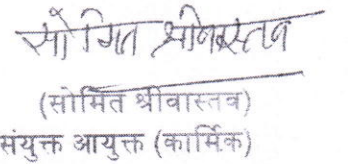 सोमित श्रीवास्तव
(सोमित श्रीवास्तव)
संयुक्त आयुक्त (कार्मिक)